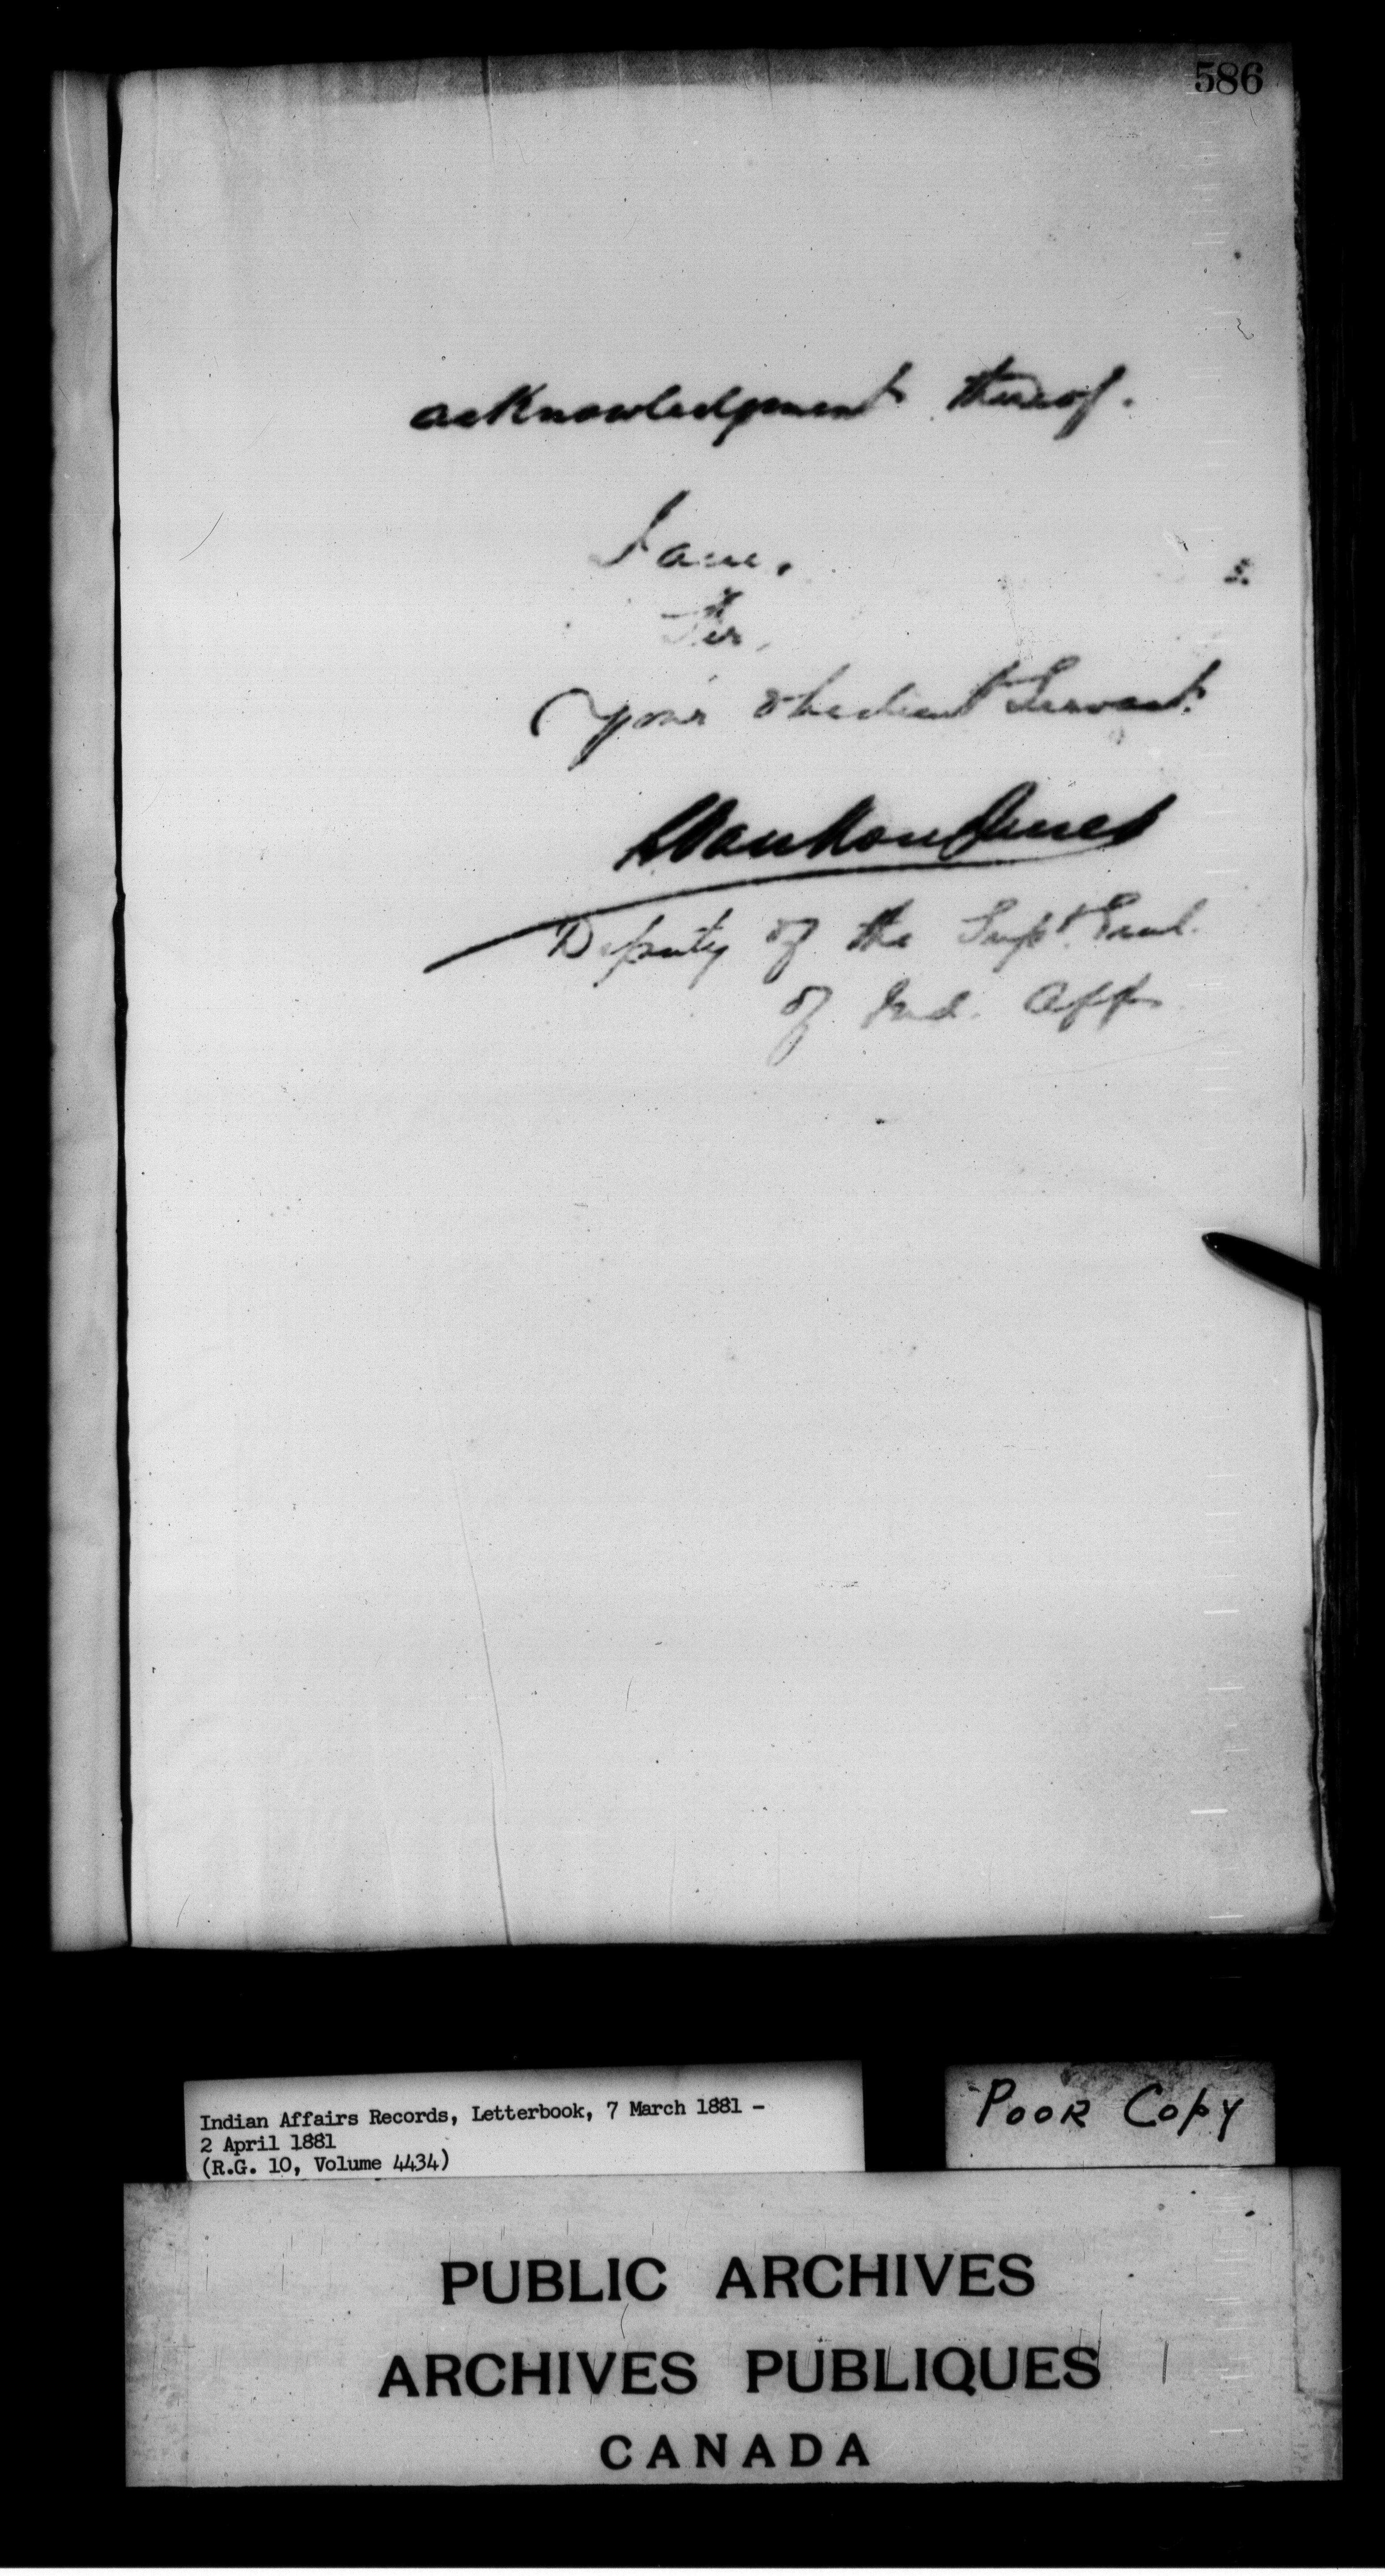 586
acknowledgment thereof.
I am,
Sir,
Your obedient Servant
L VanKoughnet
Deputy of the Supt. Genl.
of Ind. Aff
Indian Affairs Records, Letterbook, 7 March 1881 -
2 April 1881
(R.G. 10, Volume 4434)
POOR COPY
PUBLIC ARCHIVES
ARCHIVES PUBLIQUES
CANADA